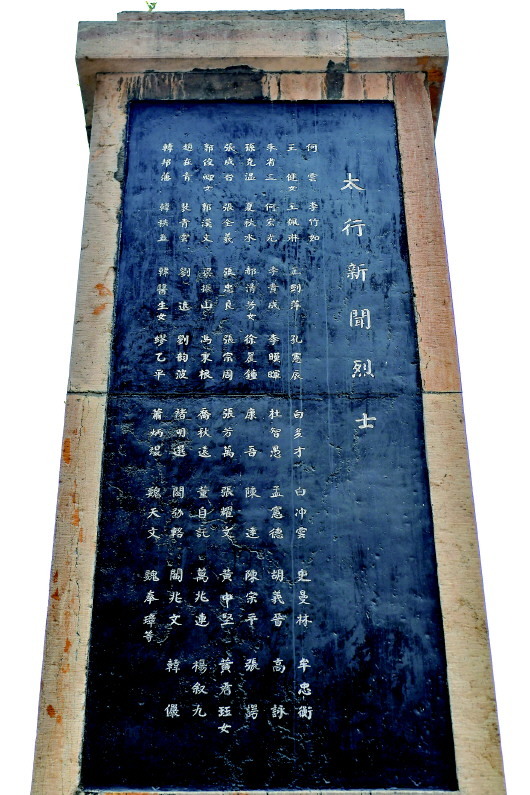 太行新聞烈士
何雲 李竹如
王健女 王佩琳 王到萍 孔憲辰 白多才 白冲雲 史曼林 牟忠衡
李省三 何宏光 李貴成 李暎暉 杜智愚 孟憲德 胡義晉 高詠
孫克溫 夏秋水 郝清芬女 徐晨鐘 康吾 陳達 陳宗平 張鶚
張成台 張全義 張忠良 張宗周 張芳萬 張耀文 黃中堅 黃君珏女
郭俊卿女 郭漢文 梁振山 馮秉根 喬秋遠 董自託 萬兆連 楊叙九
趙在青 裴青雲 劉遠 劉韵波 閻兆文 韓儼
韓邦藩 韓秩五 韓醫生女 繆乙平 蕭炳焜 魏天文 魏奉璋等